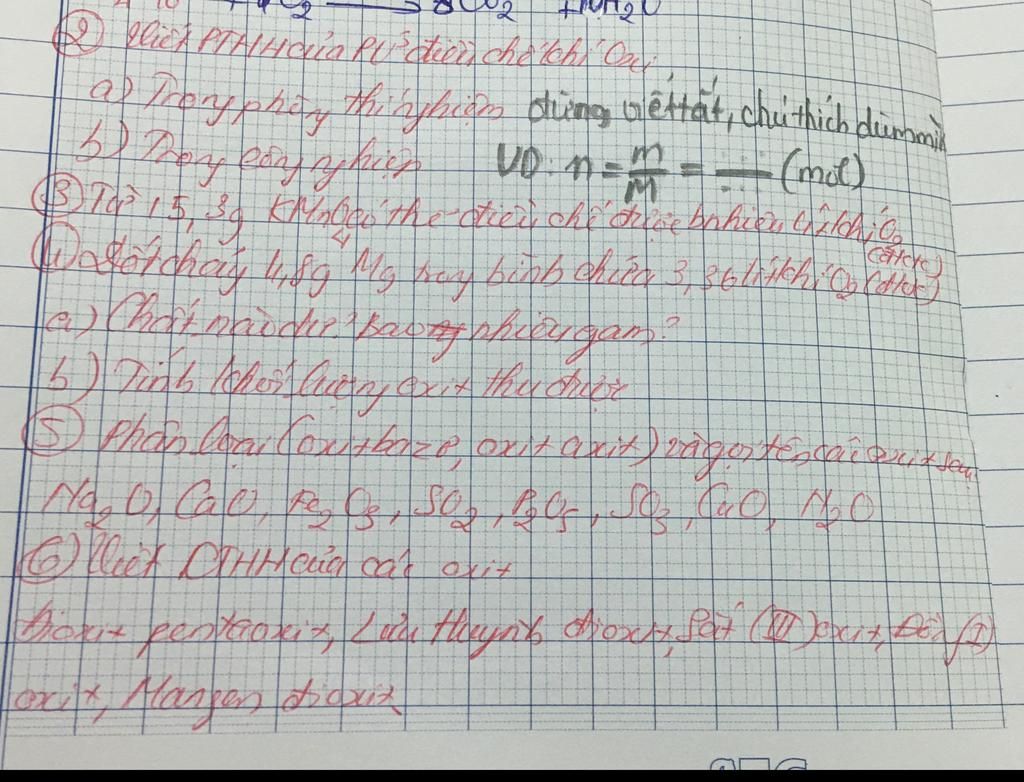 ② Viết PTHH của PƯ điều chế khí Oxi
a) Trong phòng thí nghiệm đừng viết tắt, chú thích dùm mình
b) Trong công nghiệp VD: n = m/M = (mol)
③ Từ 15,3g KMnO4 có thể điều chế được bnhiêu lít khí O2 (đktc)
④ Đốt cháy 4,8g Mg trong bình chứa 3,36 lít khí O2 (đktc)
a) Chất nào dư? Bao nhiêu gam?
b) Tính khối lượng oxit thu được
⑤ Phân loại (oxit bazơ, oxit axit) và gọi tên các oxit sau
Na2O, CaO, Fe2O3, SO2, P2O5, SO3, CuO, N2O
⑥ Viết CTHH của các oxit
pentaoxit, Lưu huỳnh đioxit, sắt (III) oxit, (I)
oxit, Mangan đioxit